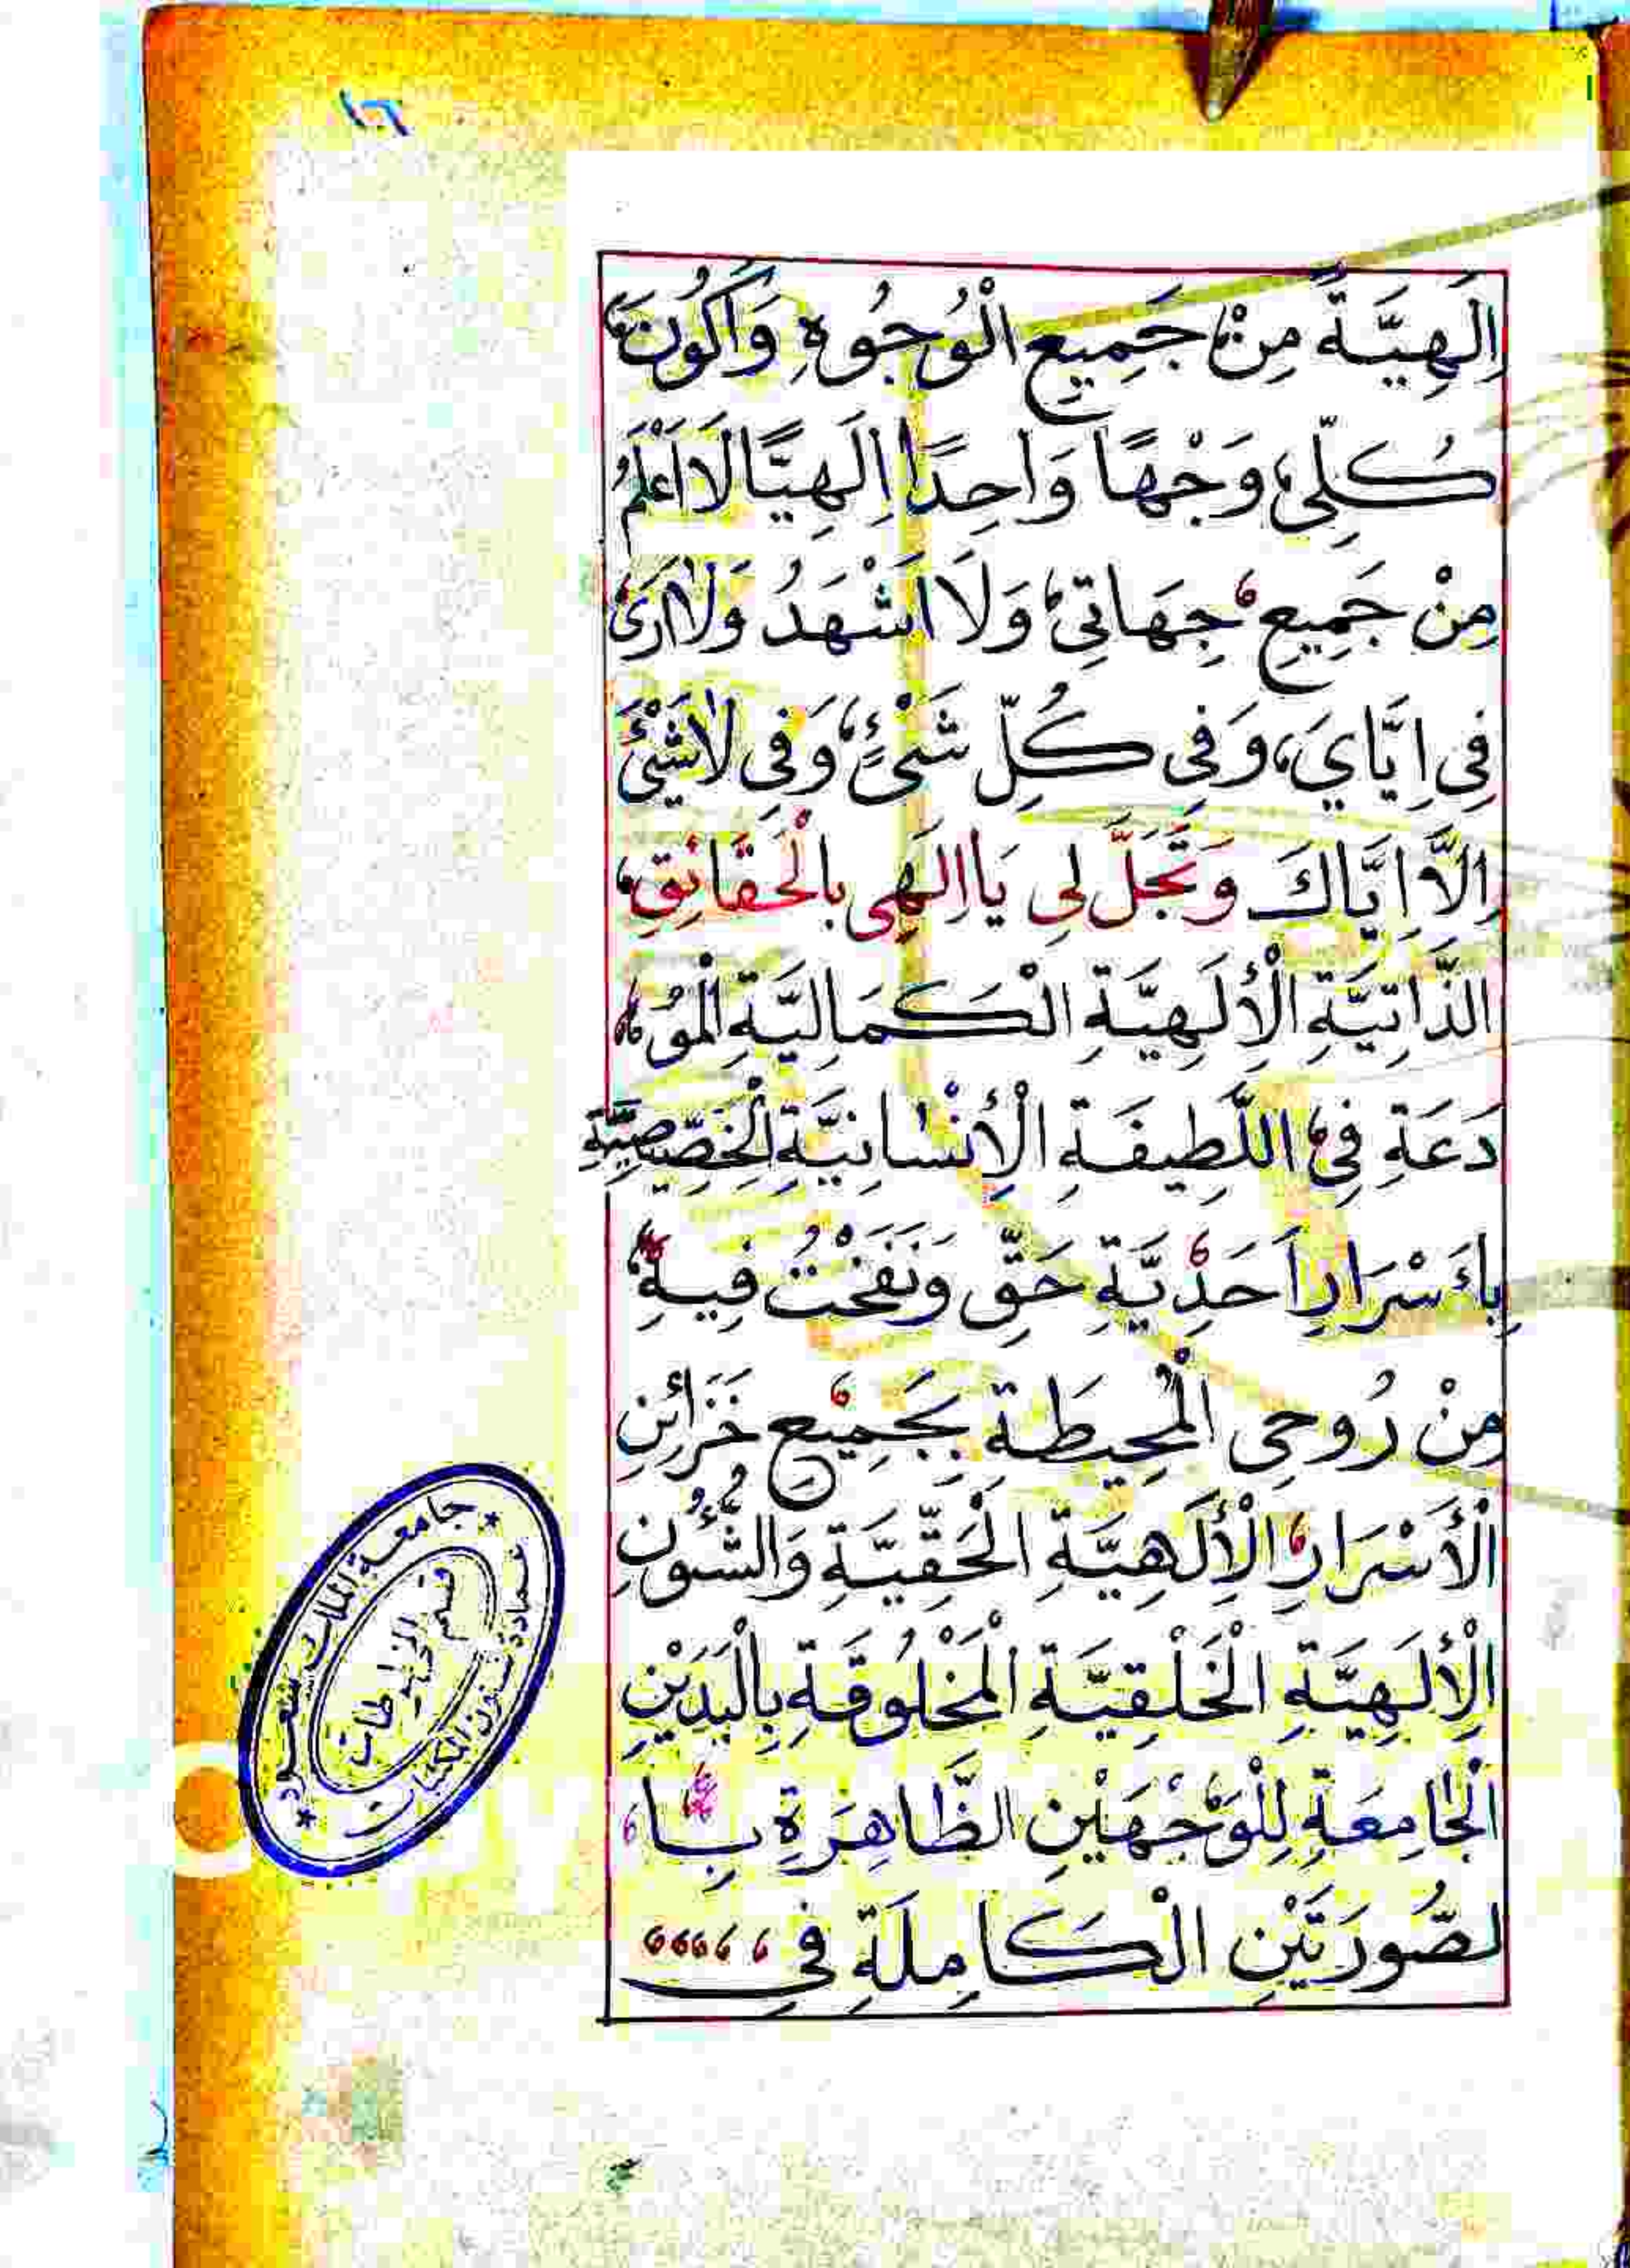 ١٦
اِلَهِيَّةً مِنْ جَمِيعِ الْوُجُوهِ وَاَكُونَ
كُلِّى، وَجْهًا وَاحِدًا اِلَهِيًّا لَا اَعْلَمُ
مِنْ جَمِيعِ جِهَاتِى، وَلَا اَشْهَدُ وَلَا اَرَى
فِى اِيَّايَ، وَفِى كُلِّ شَىْءٍ، وَفِى لَاشَيْئَ
اِلَّا اِيَّاكَ وَتَجَلَّ لِى يَا اِلَهِى بِالْحَقَائِقِ،
الذَّاتِيَّةِ الْإِلَهِيَّةِ الْكَمَالِيَّةِ الْمُوْ
دَعَةِ فِى اللَّطِيفَةِ الْإِنْسَانِيَّةِ الْخَصِّيصِيَّةِ
بِأَسْرَارِ اَحَدِيَّةِ حَقِّ وَنَفَخْتُ فِيهِ
مِنْ رُوحِى الْمُحِيطَةِ بِجَمِيعِ خَزَائِنِ
الْأَسْرَارِ الْإِلَهِيَّةِ الْحَقِّيَّةِ وَالشُّؤُنِ
الْإِلَهِيَّةِ الْخَلْقِيَّةِ الْمَخْلُوقَةِ بِالْيَدَيْنِ
الْجَامِعَةِ لِلْوَجْهَيْنِ الظَّاهِرَةِ بِا
لصُّورَتَيْنِ الْكَامِلَةِ فِى
جامعة الملك سعود
قسم المخطوطات
عمادة شئون المكتبات